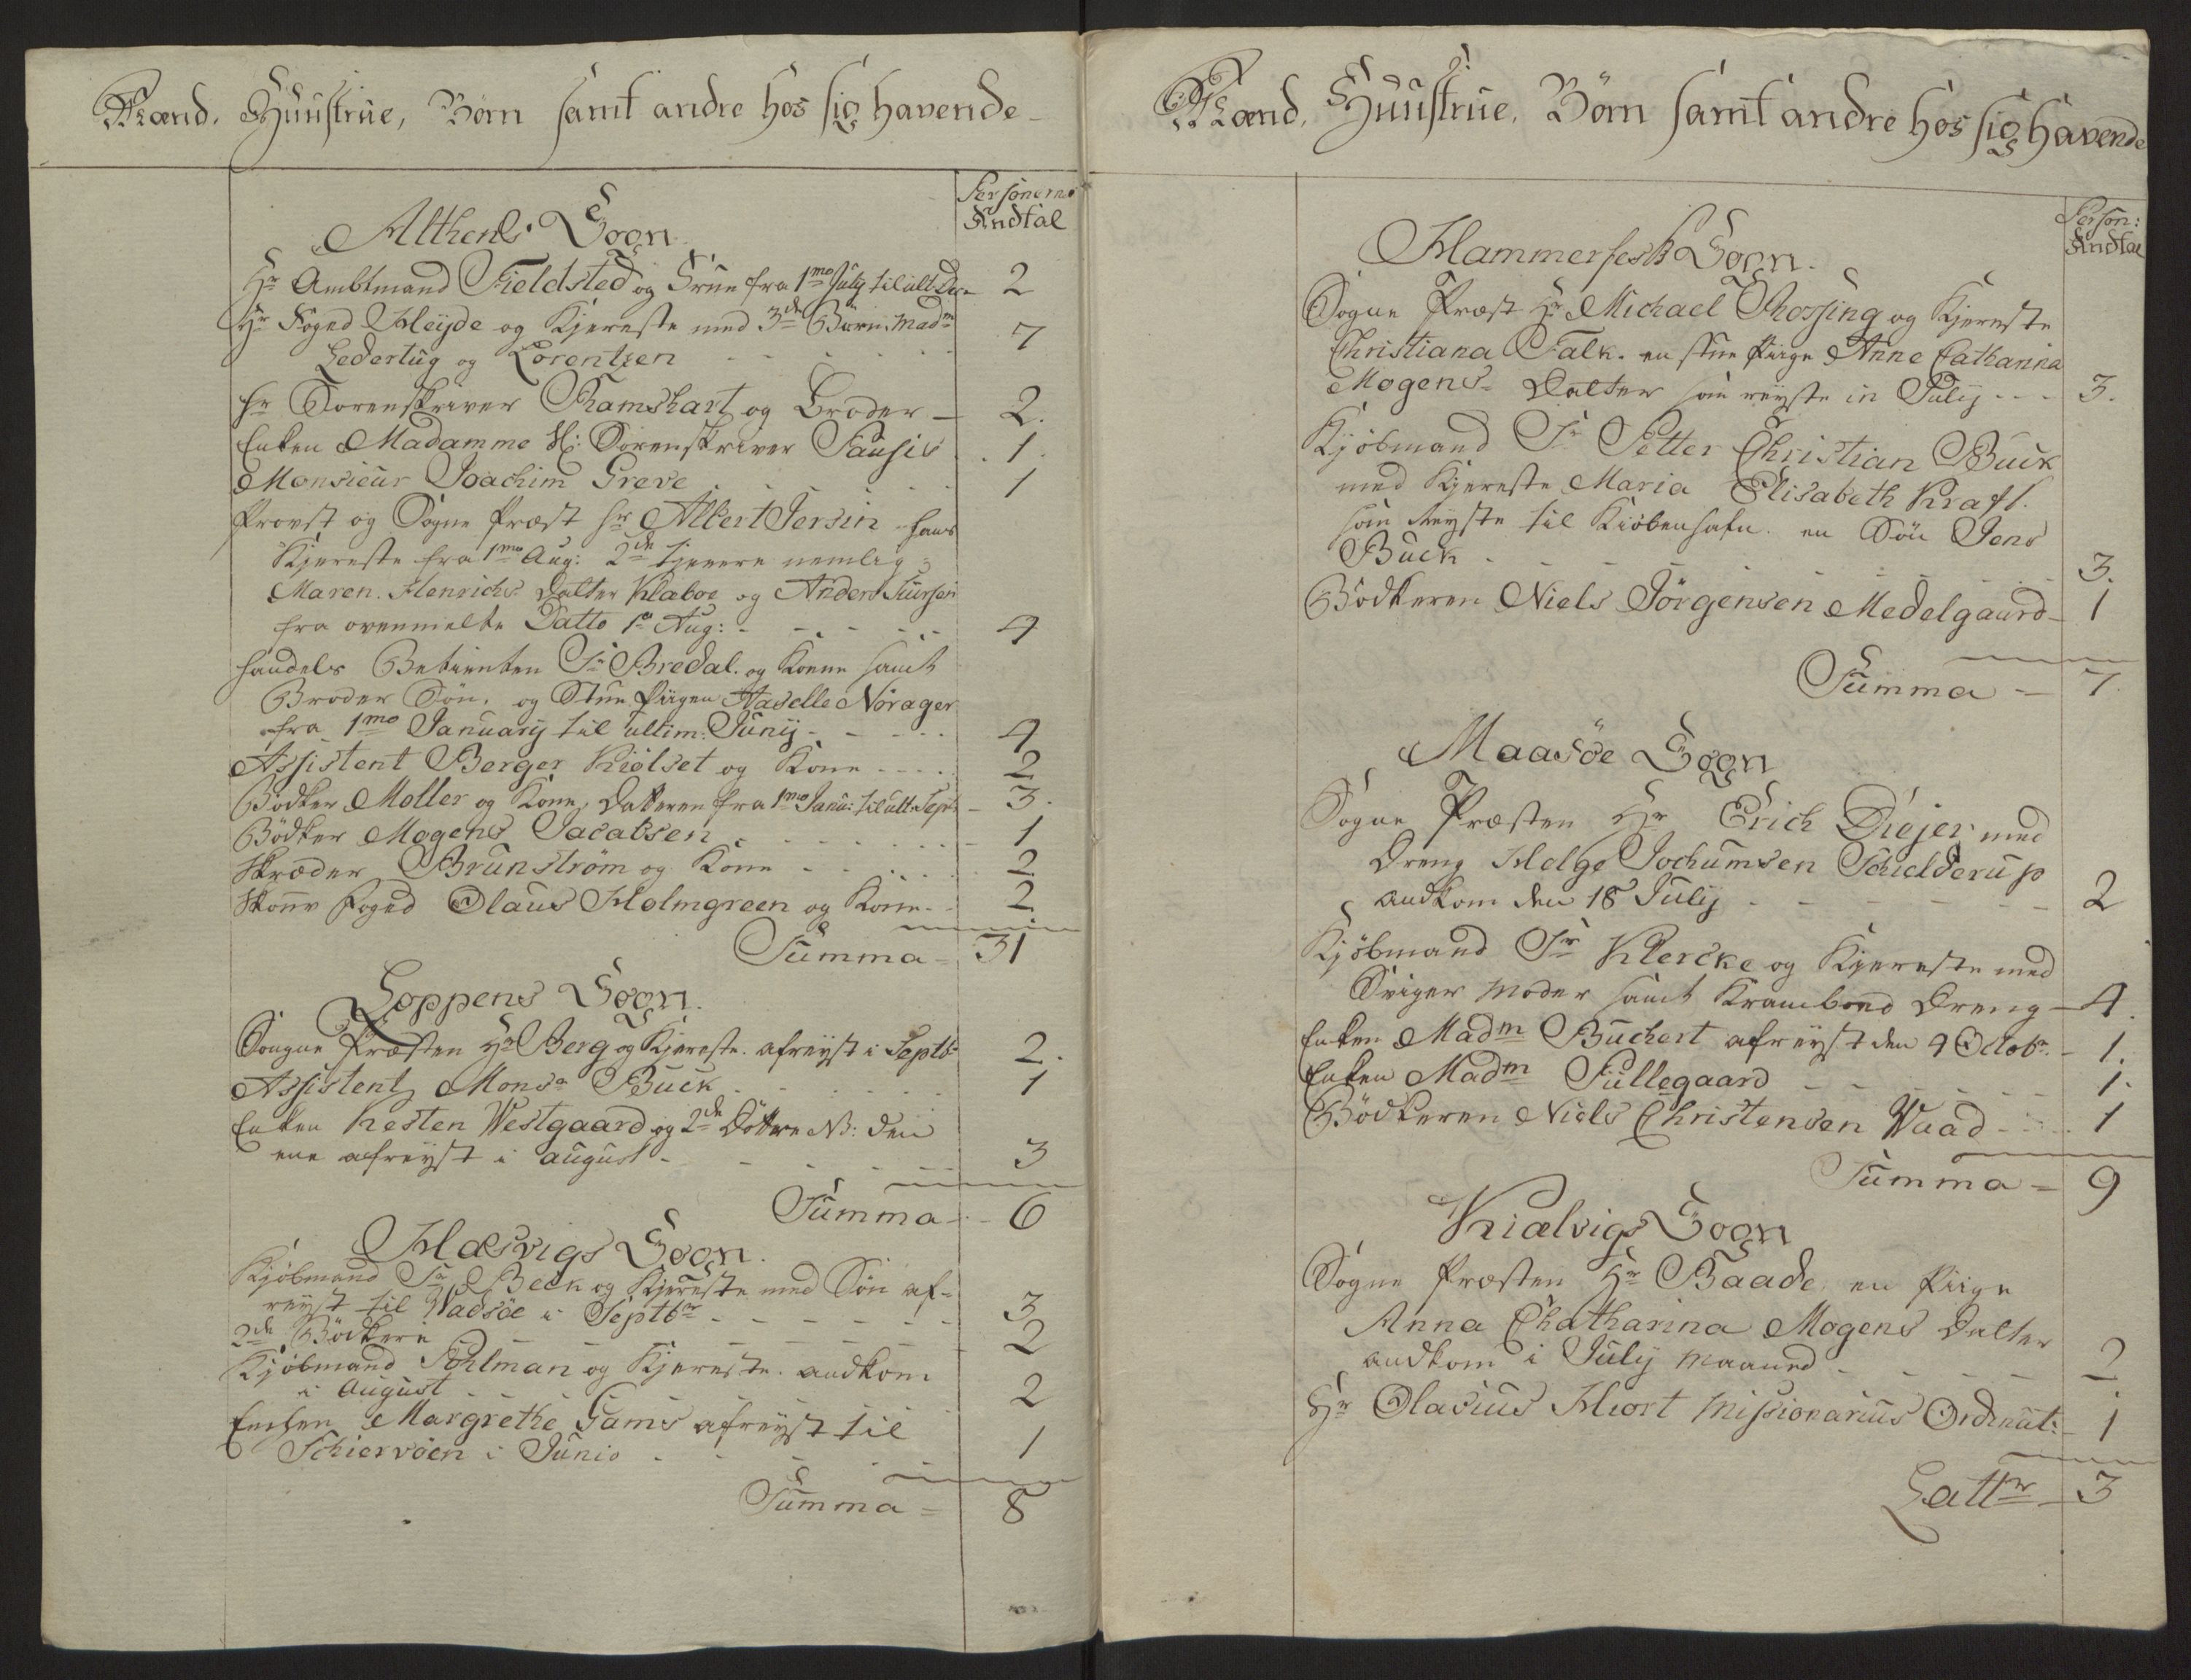 Mænd, Huustrüe, Börn samt andre hos sig havende
Personernes
Andtal
Althens Sogn
Hr Ambtmand Fieldsted og Frue fra 1mo July til ult. Dec. 2
Hr Foged Heyde og Kjereste med 3de Börn, Madm
Ledertüg og Lorentzen - 7
Hr Sorenskriver Ramshart og Broder - 2.
Enken Madamme Sl: Sorenskriver Pausis - 1
Monsieur Joachim Greve - 1
Provst og Sogne Præst Hr Albert Jersin hans
Kjereste fra 1mo Aug: 2de tjenere nemlig
Maren Henrichs Datter Klaboe og Anders Siursen
fra ovenmelte Datto 1a Aug: - 4
Handels Betienten Sr Bredal og Konne samt
Broder Sön, og Stue Piigen Haselle Nörager
fra 1mo January til ultim: Junij - 4
Assistent Berger Kielset og Kone - 2
Bödker Moller og Kone, Datteren fra 1mo Janu: til ult: Sept: - 3.
Bödker Mogens Jacobsen - 1
Skræder Brunström og Kone - 2
Skouv Foged Olaus Holmgreen og Kone - 2
Summa - 31
Loppens Sogn
Songne Præsten Hr Berg og Kjereste afreyst i Septbr 2.
Assistent Monsr Buck - 1
Enken Kesten Westgaard og 2de Döttre NB: den
ene afreyst i august - 3
Summa - 6
Hasvigs Sogn
Kjöbmand Sr Beck og Kjereste med Sön af-
reyst til Wadsöe i Septbr - 3
2de Bödkere - 2
Kjöbmand Pohlman og Kjereste andkom
i August - 2
Enchen Margrethe Gams afreyst til
Schiervöen i Junio - 1
Summa = 8
Mænd, Huustrüe, Börn samt andre hos sig havende
Person:
Andtal
Hammerfest Sogn
Sogne Præst Hr Michael Rossing og Kjereste
Christiana Falk. en stue Piige Anne Catharina
Mogens Datter som reyste in Julij - 3.
Kjöbmand Sr Petter Christian Buck
med Kjereste Maria Elisabeth Kraft
som Reyste til Kiöbenhafn. en Sön Jens
Buck - 3.
Bödkeren Niels Jörgensen Medelgaard - 1
Summa - 7
Maasöe Sogn
Sogne Præsten Hr Erich Diejer med
Dreng Helge Jochumsen Schielderup
andkom den 18 Julij - 2
Kjöbmand Sr Klercke og Kjereste med
Sviger Moder samt Krambod Dreng - 4.
Enken Madm Buchert afreyst den 4 Octobr - 1.
Enken Madm Füllegaard - 1.
Bödkeren Niels Christensen Waad - 1
Summa = 9
Kielvigs Sogn
Sogne Præsten Hr Baade, en Piige
Anna Chatharina Mogens Datter
andkom i Julij Maaned - 2
Hr Olasius Hiort Missionarius Ordinat: - 1
Lattr - 3